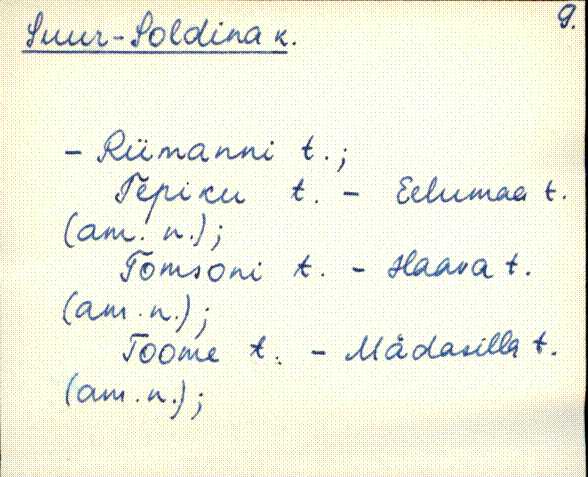 9.
Suur-Soldina k.
- Riimanni t.;
Tepiku t. - Eelumaa t.
(am. n.);
Tomsoni t. - Haava t.
(am. n.);
Toome t. - Mädasilla t.
(am. n.);